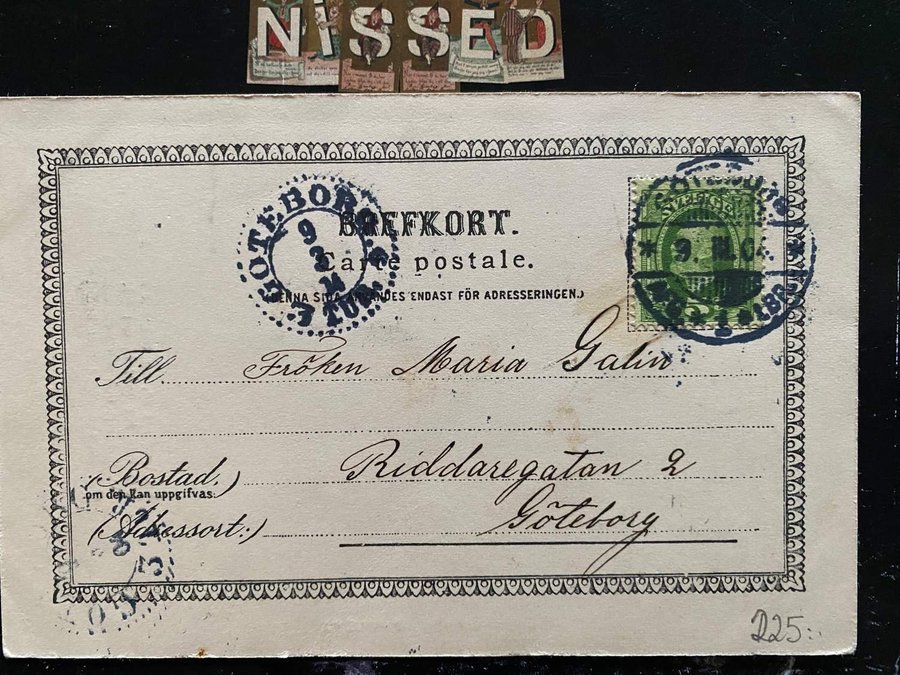 NiSSED
BREFKORT.
Carte postale.
(DENNA SIDA ANVÄNDES ENDAST FÖR ADRESSERINGEN.)
GÖTEBORG
9
3
E. TUR.
SVERIGE
GÖTEBORG
* 9. III. 04. *
Till Fröken Maria Galin
(Bostad.) Riddaregatan 2
om den kan uppgifvas:
(Adressort:) Göteborg
225:-